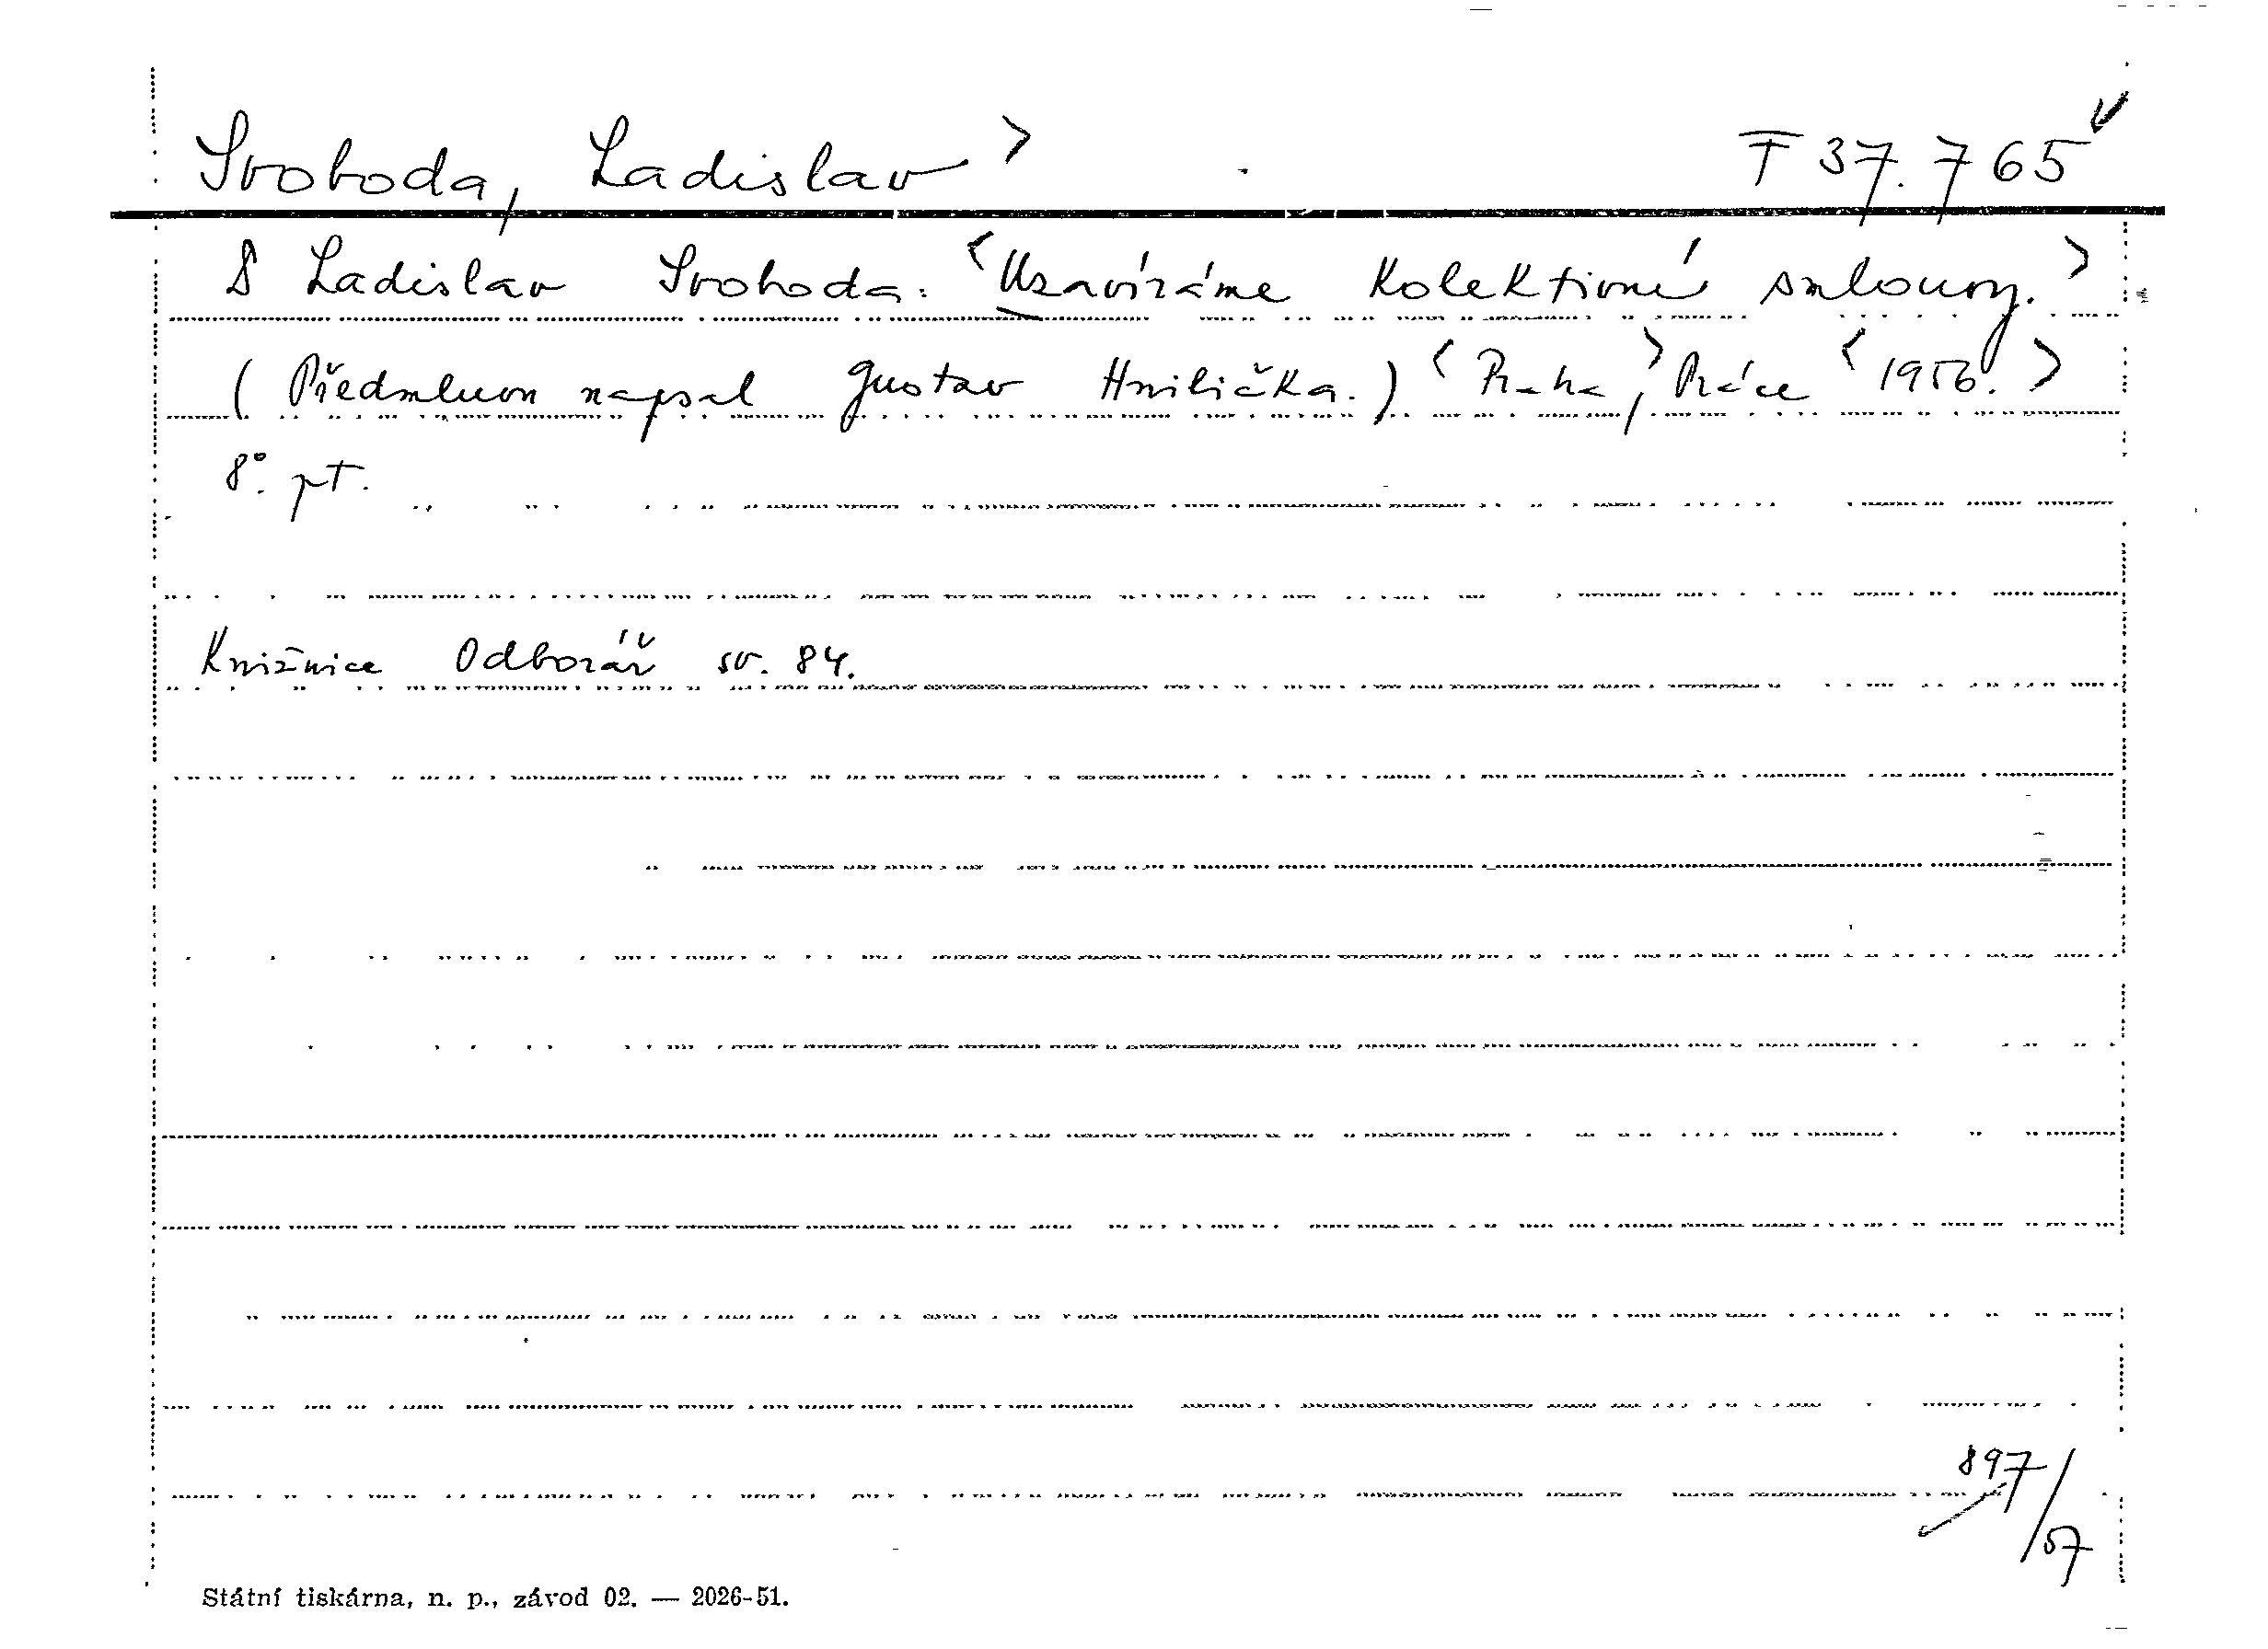 Svoboda, Ladislav > T 37.765
Ladislav Svoboda: <Uzavíráme kolektivní smlouvy.>
(Předmluvu napsal Gustav Hnilička.) <Praha,> Práce <1956.>
8°. pt.
Knižnice Odborář sv. 84.
897/57
Státní tiskárna, n. p., závod 02. — 2026-51.